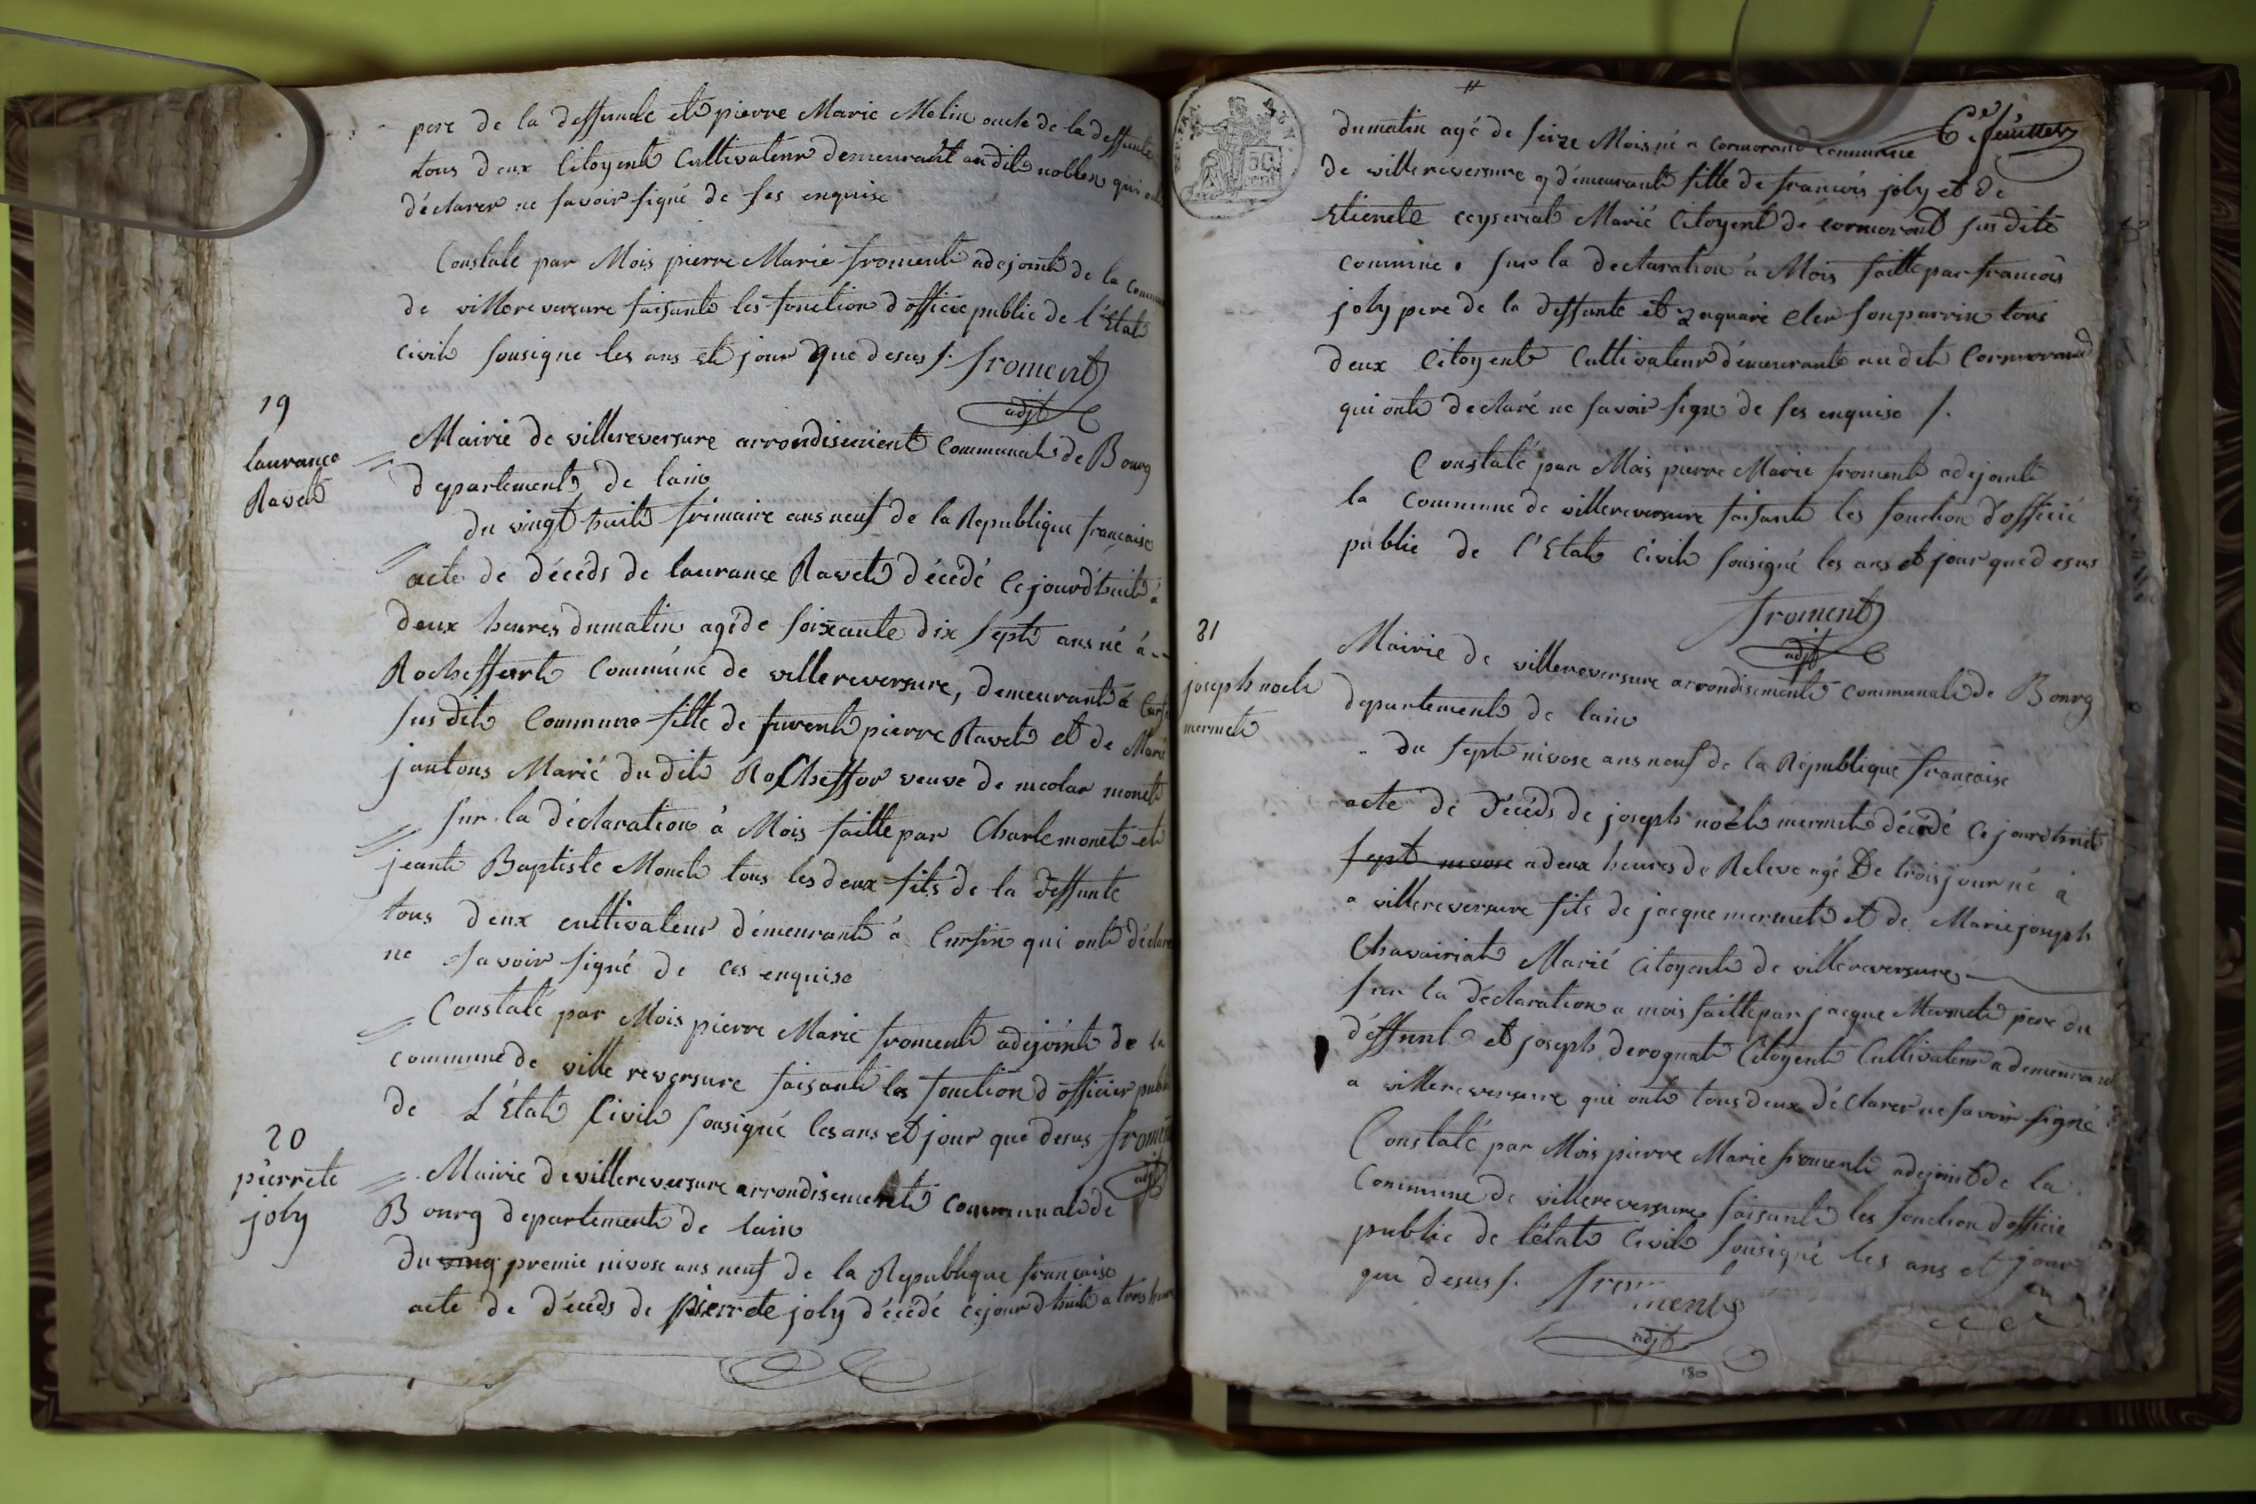 pere de la deffunte et pierre Marie Molin oncle de la deffunte
tous deux Citoyent Cultivateur demeurant au dit noblen qui ont
déclarer ne savoir signé de ses enquise
Constale par Mois pierre Marie froment adejoint de la Commune
de villereversure faisante les fonction d'officie public de l'Etat
civil sousigne les ans et jour que desus /. froment
adjt
19
laurance
Ravet
Mairie de villereversure arrondisement Communal de Bourg
departement de lain
du vingt huit frimaire ans neuf de la Republique francaise
acte de décéds de laurance Ravet décédé Cejourdhuit à
deux heures dumatin agé de soixante dix sept ans né à
Rocheffort Commune de villereversure, demeurant à
sus dit Commune fille de fuvent pierre Ravet et de Marie
jantons Marié du dit Rocheffor veuve de nicolas monet
sur la déclaration à Mois faitte par Charle monet et
jeant Baptiste Monet tous les deux fils de la deffunte
tous deux cultivateur démeurant à Cursin qui ont déclare
ne savoir signé de ces enquise
Constalé par Mois pierre Marie froment adejoint de la
commune de ville reversure faisante les fonction d'officier public
de L'Etat Civil sousigné les ans et jour que desus froment
adjt
20
pierrete
joly
Mairie de villereversure arrondisement communal de
Bourg departement de lain
du ving premie nivose ans neuf de la Republique francaise
acte de décéds de pierrete joly décédé cejourdhuit a trois heure
6e feuillet
dumatin agé de seize Mois né a Cormorand Commune
de villereversure y démeurant fille de francois joly et de
Etienete ceyseriat Marié Citoyent de cormorant susdite
commune. sur la declaration à Mois faitte par francois
joly pere de la deffunte et zaquarie cler son parrin tous
deux Citoyent Cultivateur démeurant au dit Cormorand
qui ont declaré ne savoir sign de ses enquise /.
Constalé par Mois pierre Marie froment adejoint
la Commune de villereversure faisant les fonction d'officié
public de l'Etat Civil sousigné les ans et jour que desus
froment
adjt
21
joseph noel
mermet
Mairie de villereversure arrondisement communal de Bourg
departement de lain
du sept nivose ans neuf de la République francaise
acte de décéds de joseph noël mermet décédé Cejourdhuit
sept nivose a deux heures de Releve agé De trois jour né à
a villereversure fils de jacque mermet et de Marie joseph
Chavairiat Marié Citoyent de villereversure
sur la déclaration a mois faitte par jacque Mermet pere du
déffunt et joseph derognat Citoyent Cultivateur a demeurant
a villereversure qui ont tous deux déclarer ne savoir signé
Constalé par Mois pierre Marie froment adejoint de la
Commune de villereversure faisant les fonction d'officie
public de l'état Civil sousigné les ans et jour
que desus /. froment
adjt
180